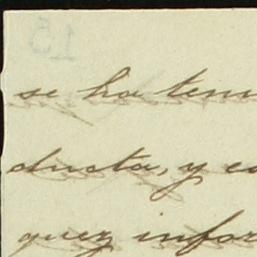 se ha teni
ducta, y co
quez infor